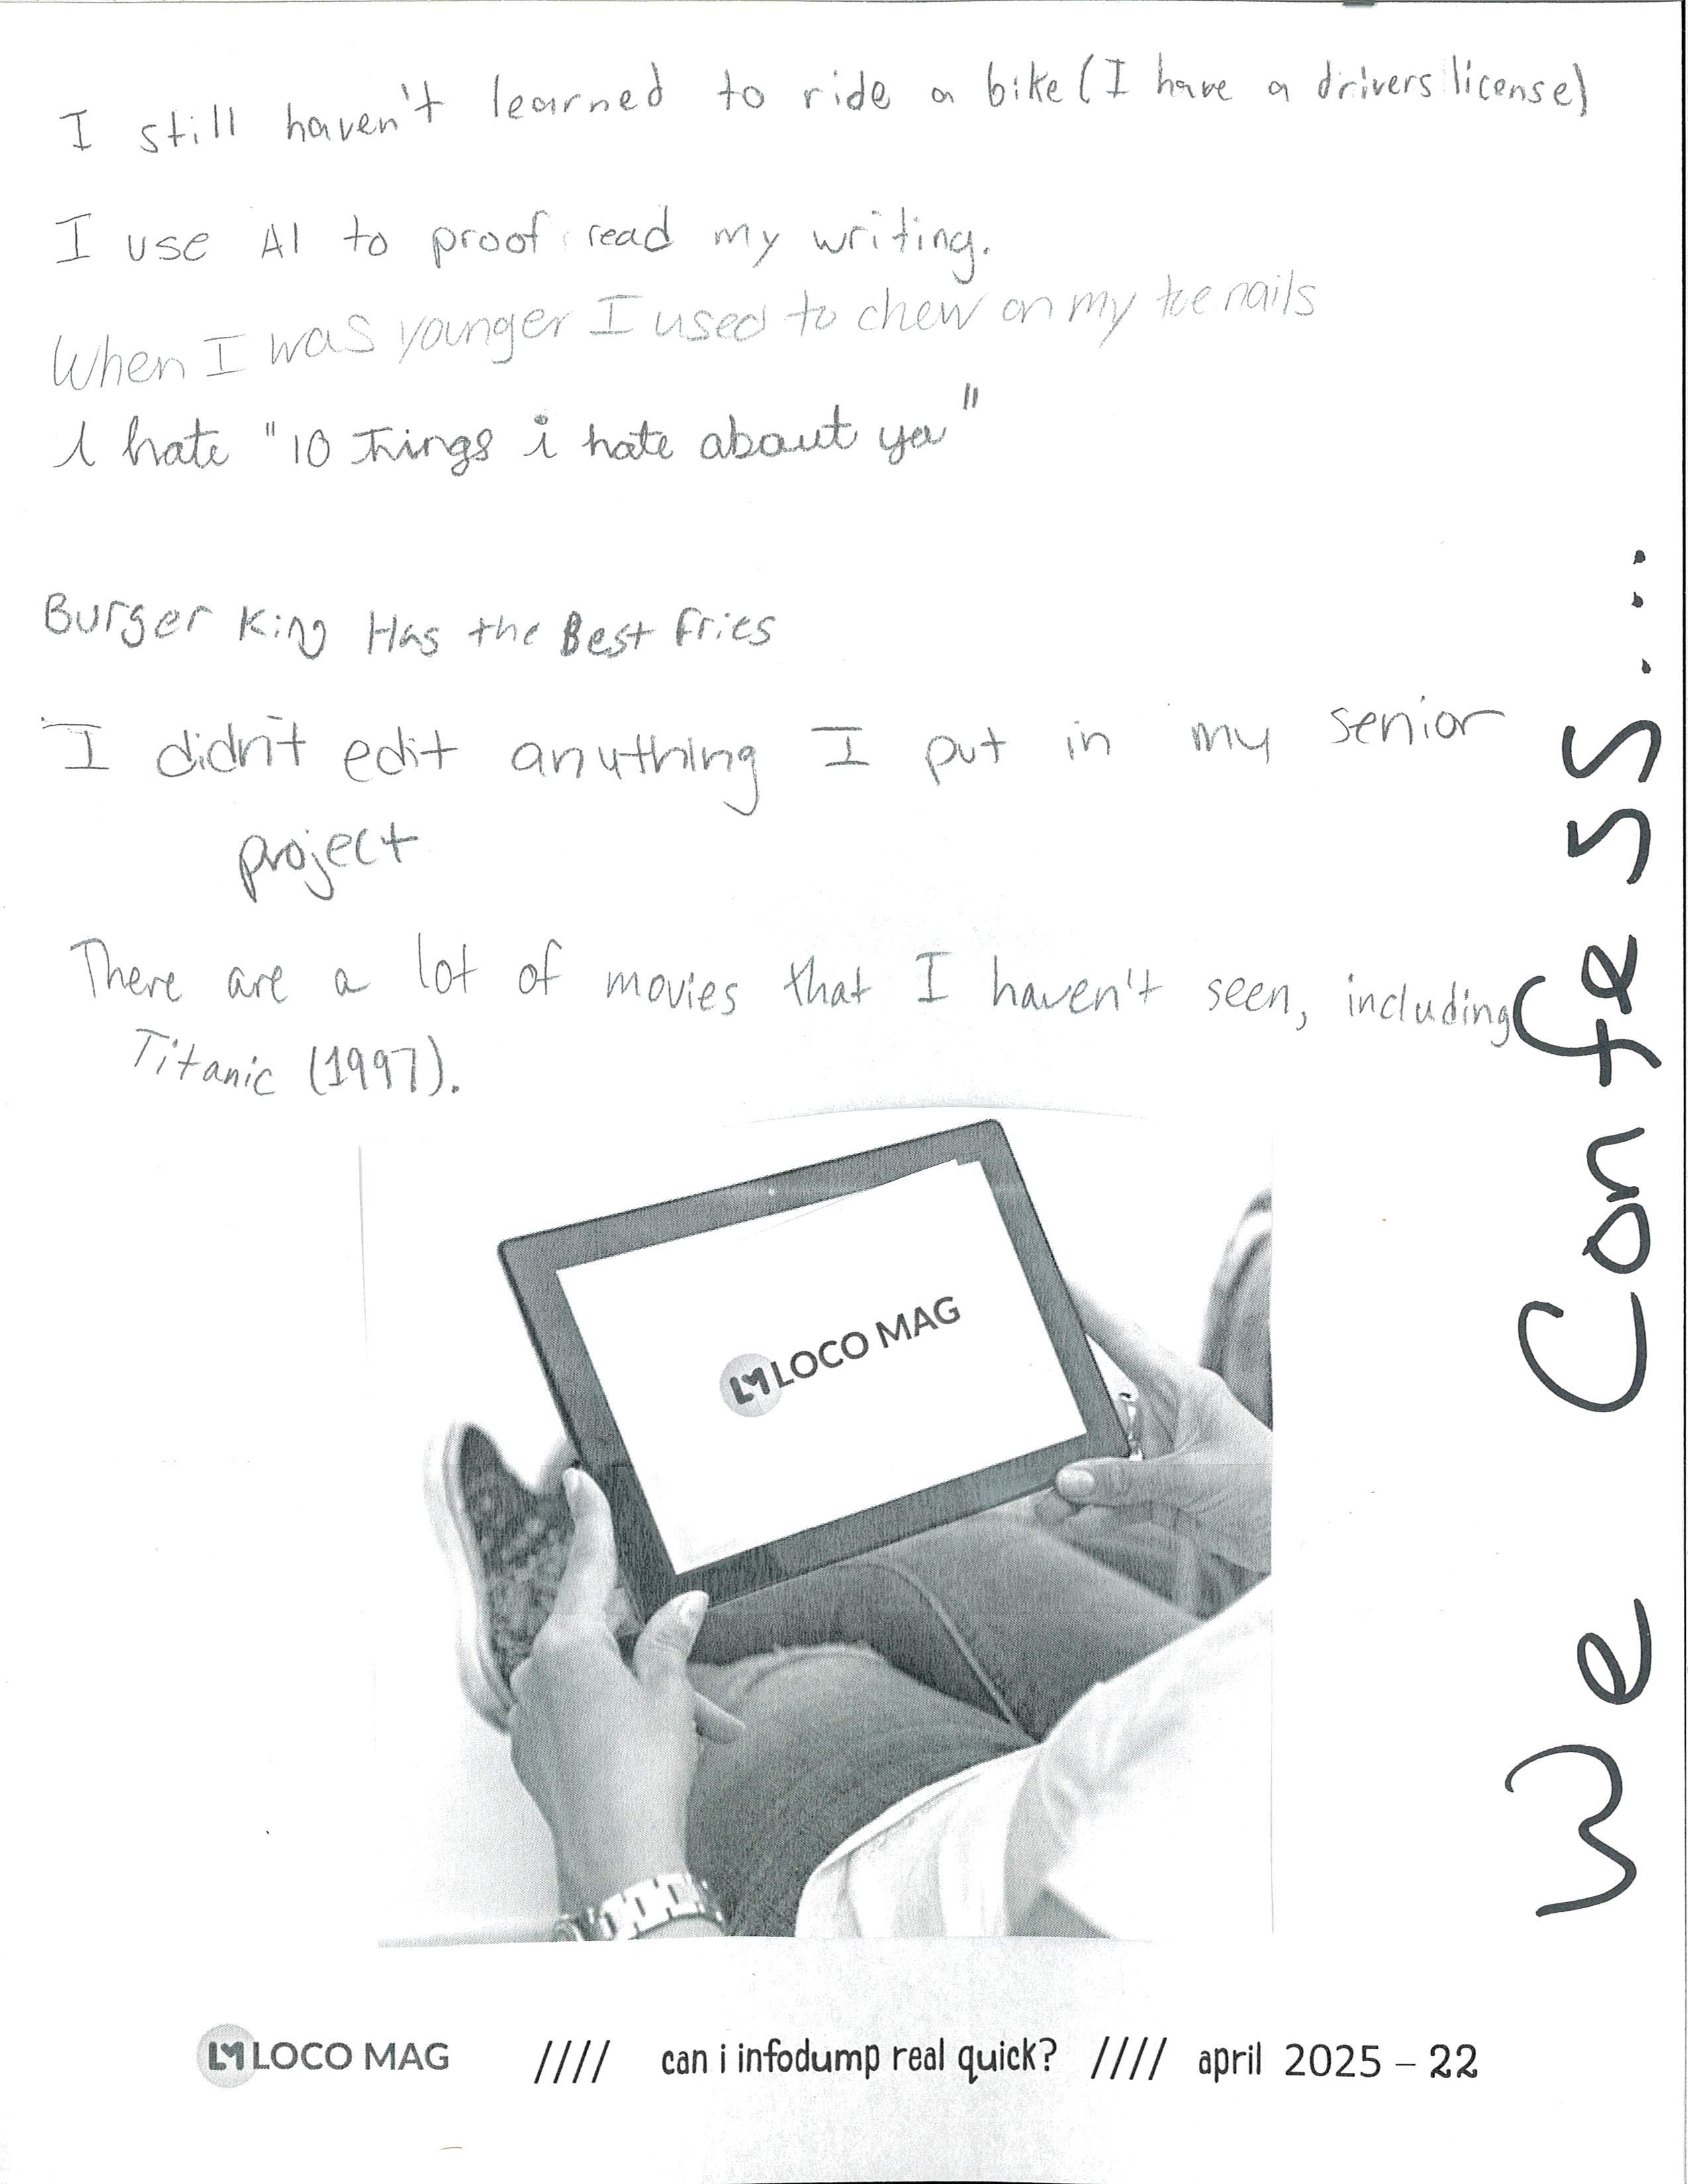 I still haven't learned to ride a bike (I have a drivers license)
I use AI to proof read my writing.
When I was younger I used to chew on my toe nails
I hate "10 things i hate about you"
Burger King Has the Best fries
I didn't edit anything I put in my senior
project
There are a lot of movies that I haven't seen, including
Titanic (1997).
We Confess...
LM LOCO MAG
LM LOCO MAG //// can i infodump real quick? //// april 2025 – 22